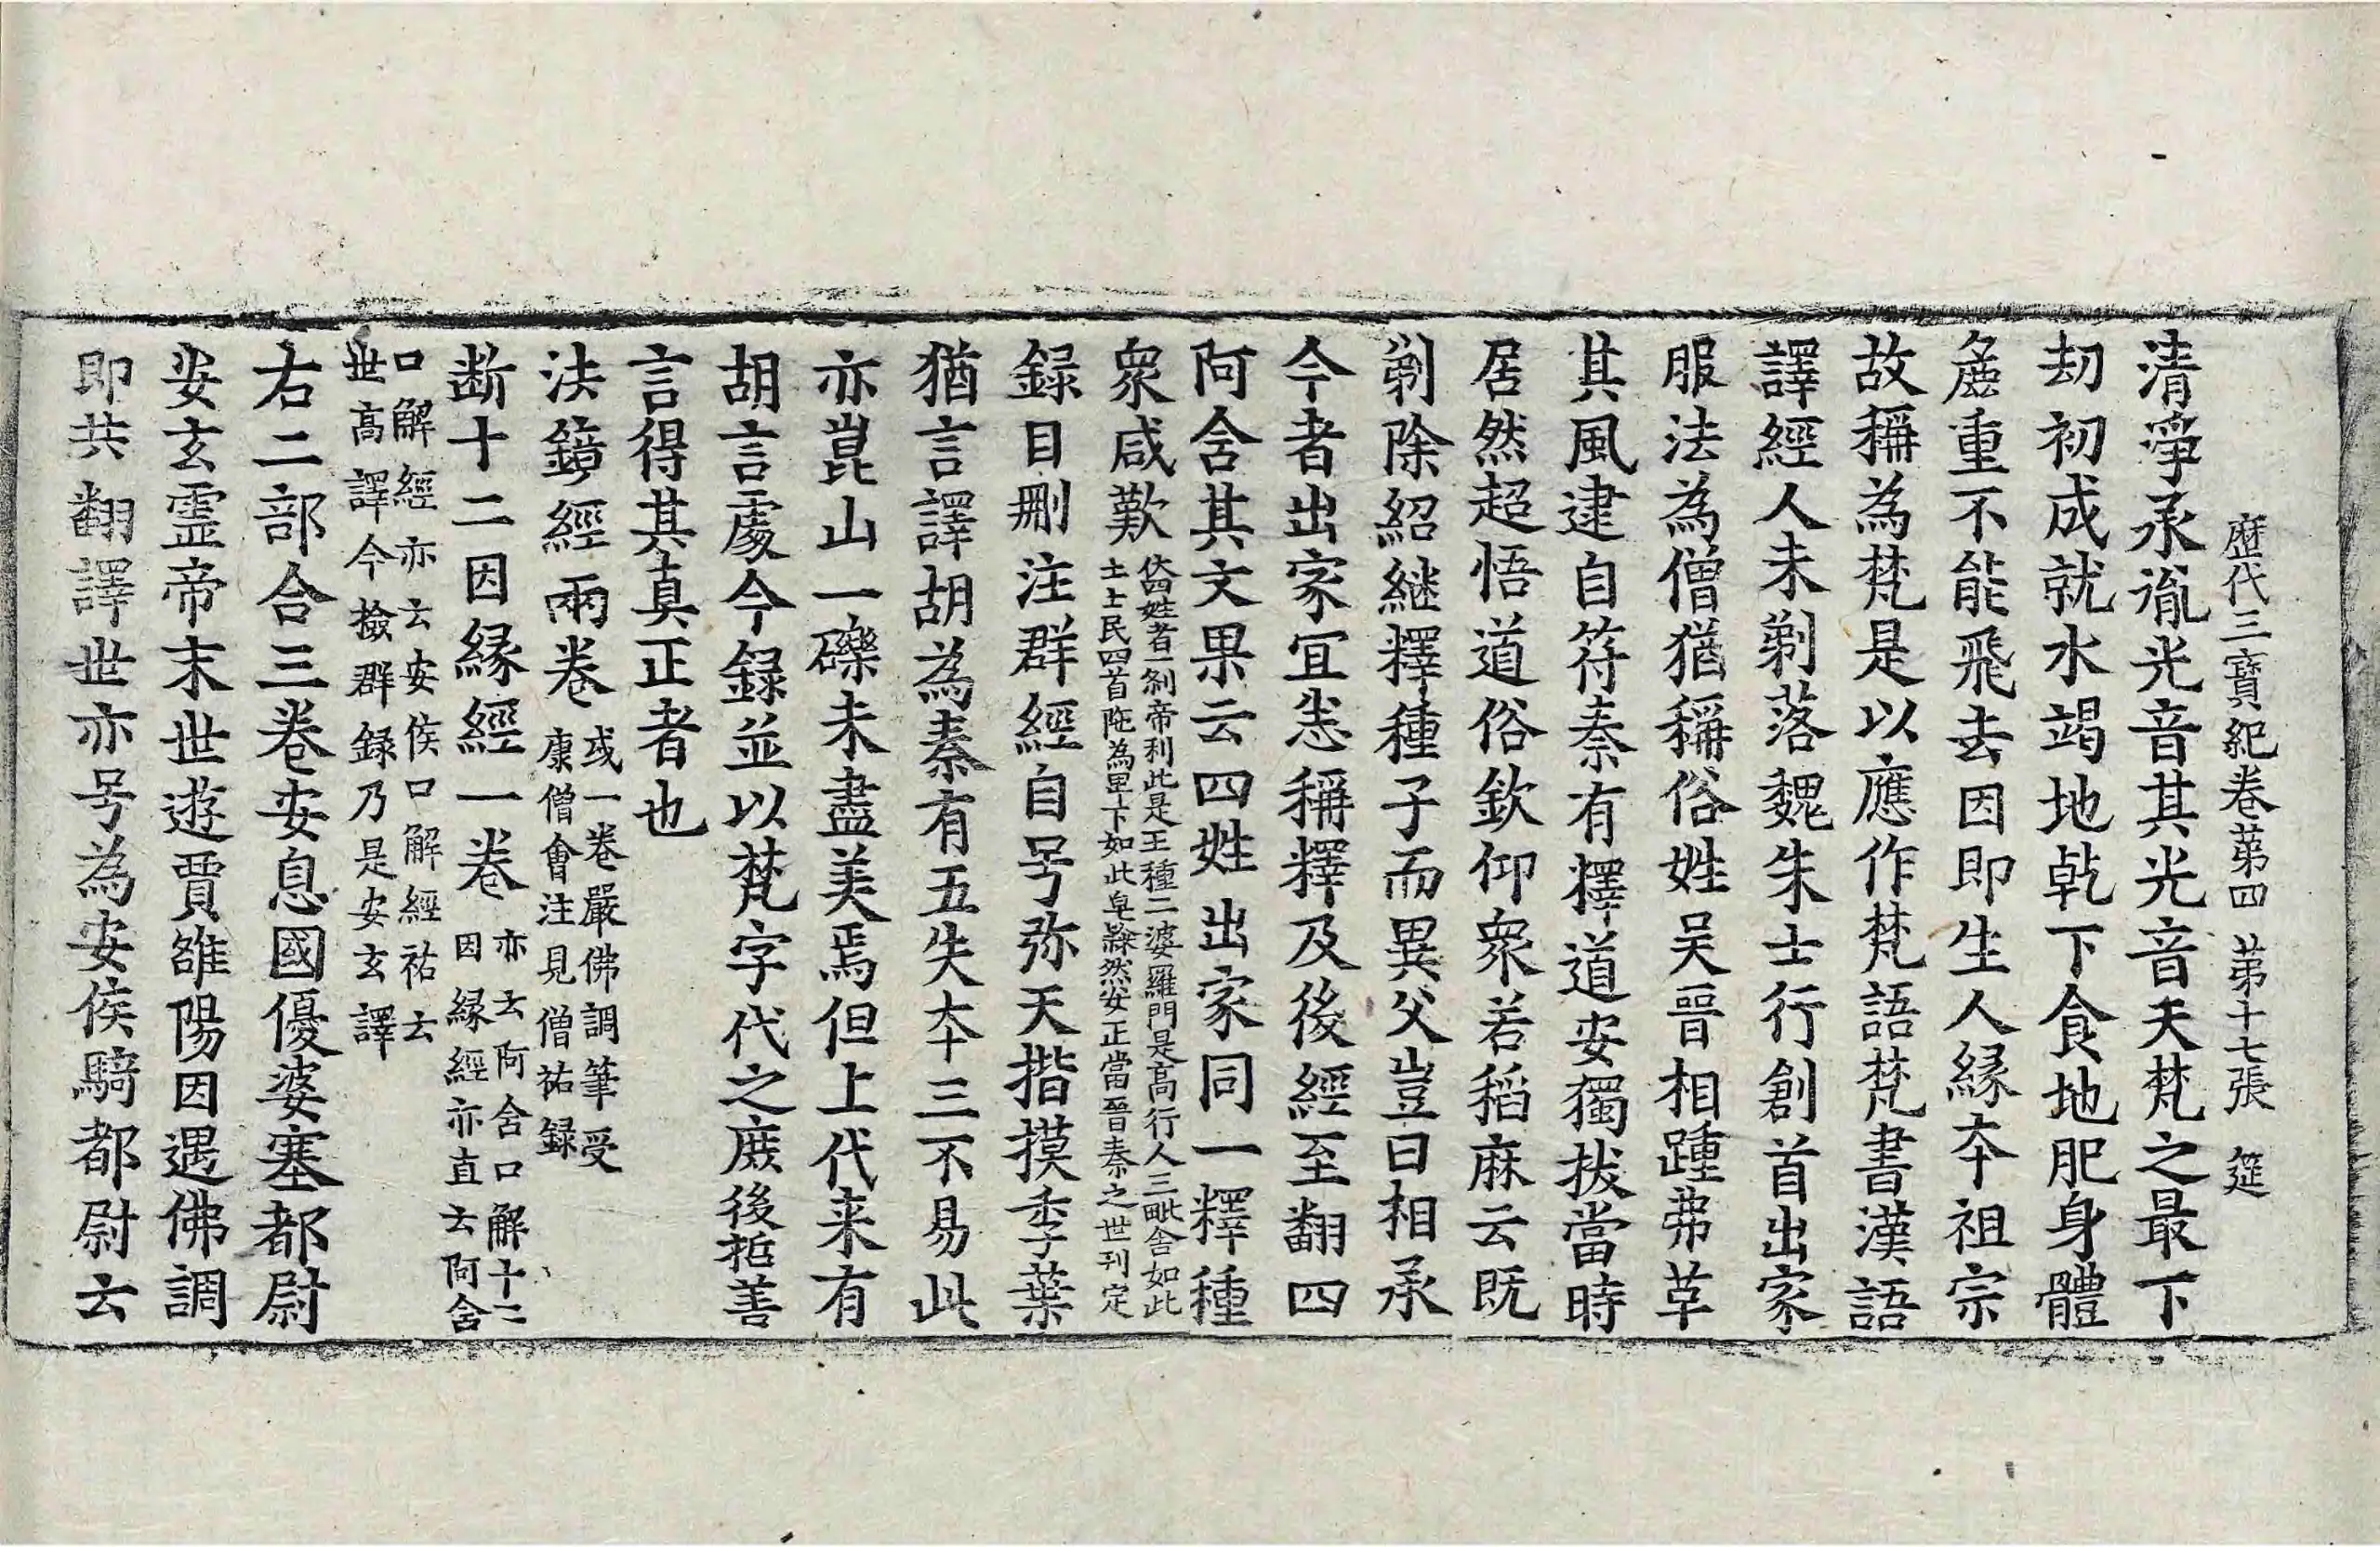 歷代三寶紀卷苐四 苐十七張 筵
清淨承胤光音其光音天梵之最下
劫初成就水竭地乹下食地肥身體
麁重不能飛去因即生人緣夲祖宗
故稱為梵是以應作梵語梵書漢語
譯經人未剃落魏朱士行創首出家
服法為僧猶稱俗姓吴晉相踵弗草
其風逮自苻秦有釋道安獨拔當時
居然超悟道俗欽仰衆若稻麻云既
剃除紹継釋種子而異父豈曰相承
今者出家冝悉稱釋及後經至翻四
阿含其文果云四姓出家同一釋種
衆咸歎
佽四姓者一剎帝利此是王種二婆羅門是髙行人三毗舍如此
土士民四首陁為卑下如此皂𨽻然安正當晉秦之世刊定
録目刪注群經自号弥天揩摸季葉
猶言譯胡為秦有五失夲三不易此
亦崑山一礫未盡美焉但上代来有
胡言處今録並以梵字代之庻後哲善
言得其真正者也
法鏡經兩卷
或一卷嚴佛調筆受
康僧會注見僧祐録
断十二因緣經一卷
亦云阿含口解十二
因緣經亦直云阿舍
口解經亦云安侯口解經祐云
世髙譯今撿群録乃是安玄譯
右二部合三卷安息國優婆塞都尉
安玄霊帝末世遊賈雒陽因遇佛調
即共翻譯世亦号為安侯騎都尉云